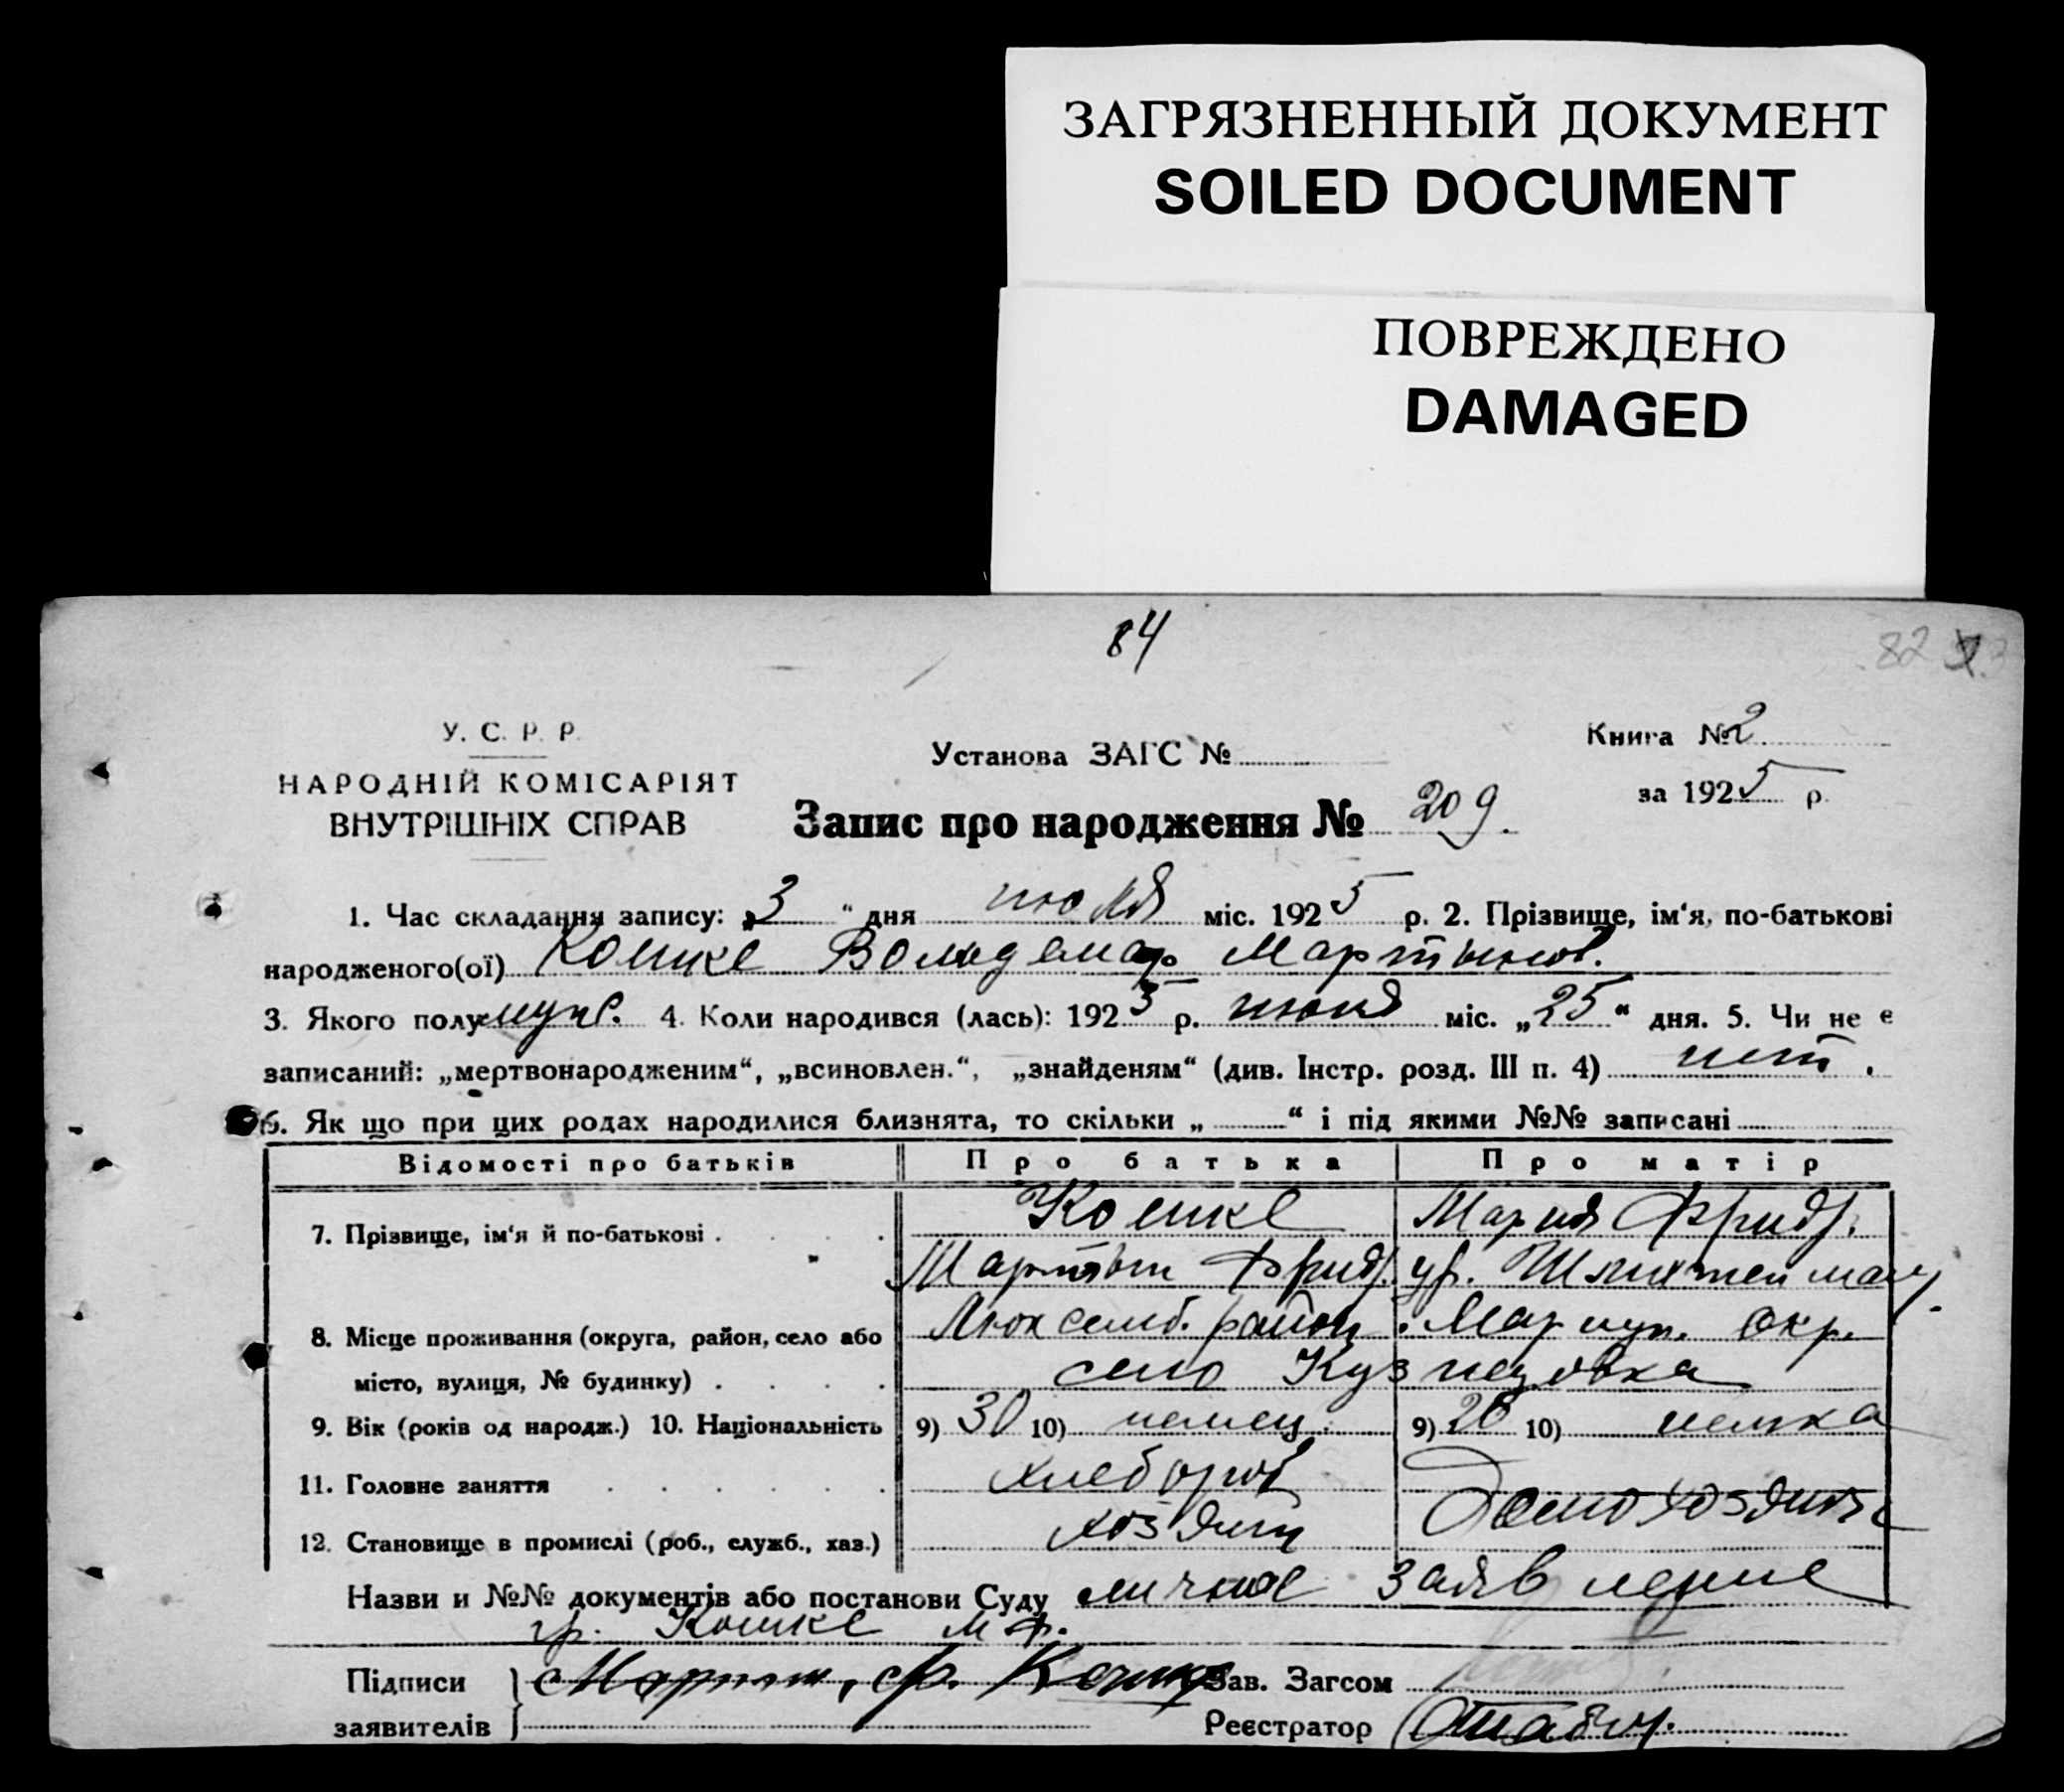 ЗАГРЯЗНЕННЫЙ ДОКУМЕНТ
SOILED DOCUMENT
ПОВРЕЖДЕНО
DAMAGED
84
82
У. С. Р. Р.
НАРОДНІЙ КОМІСАРІЯТ
ВНУТРІШНІХ СПРАВ
Установа ЗАГС №
Книга № 2
за 1925 р.
Запис про народження № 209.
1. Час складання запису: „3 “ дня июля міс. 1925 р. 2. Прізвище, ім‘я, по-батькові
народженого(ої) Кошке Вольдемар Мартынов.
3. Якого полу муж. 4. Коли народився (лась): 1925 р. июня міс. „25“ дня. 5. Чи не є
записаний: „мертвонародженим“, „всиновлен.“, „знайденям“ (див. Інстр. розд. III п. 4) нет.
6. Як що при цих родах народилися близнята, то скільки „ “ і під якими №№ записані
Відомості про батьків Про батька Про матір
7. Прізвище, ім‘я й по-батькові Кошке Мария Фридр.
Мартын Фридр. ур.
8. Місце проживання (округа, район, село або Люксемб. район Мариуп. окр.
місто, вулиця, № будинку) село Кузнецовка
9. Вік (років од народж.) 10. Національність 9) 30 10) немец. 9) 10) немка
11. Головне заняття хлебороб
12. Становище в промислі (роб., служб., хаз.) хозяин Домохозяйка
Назви и №№ документів або постанови Суду личное заявление
гр. Кошке М. Ф.
Підписи Мартин, Ф. Кошке Зав. Загсом
заявителів Реєстратор